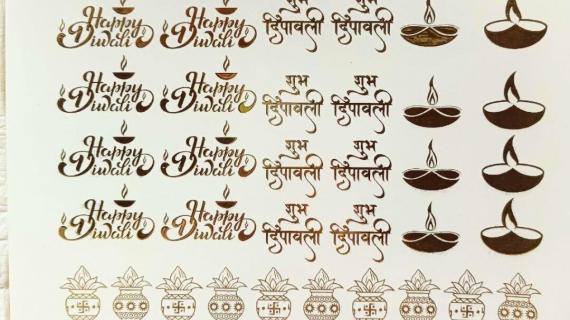 Happy Happy शुभ शुभ
Diwali Diwali दिपावली दिपावली
Happy Happy शुभ शुभ
Diwali Diwali दिपावली दिपावली
Happy Happy शुभ शुभ
Diwali Diwali दिपावली दिपावली
Happy Happy शुभ शुभ
Diwali Diwali दिपावली दिपावली